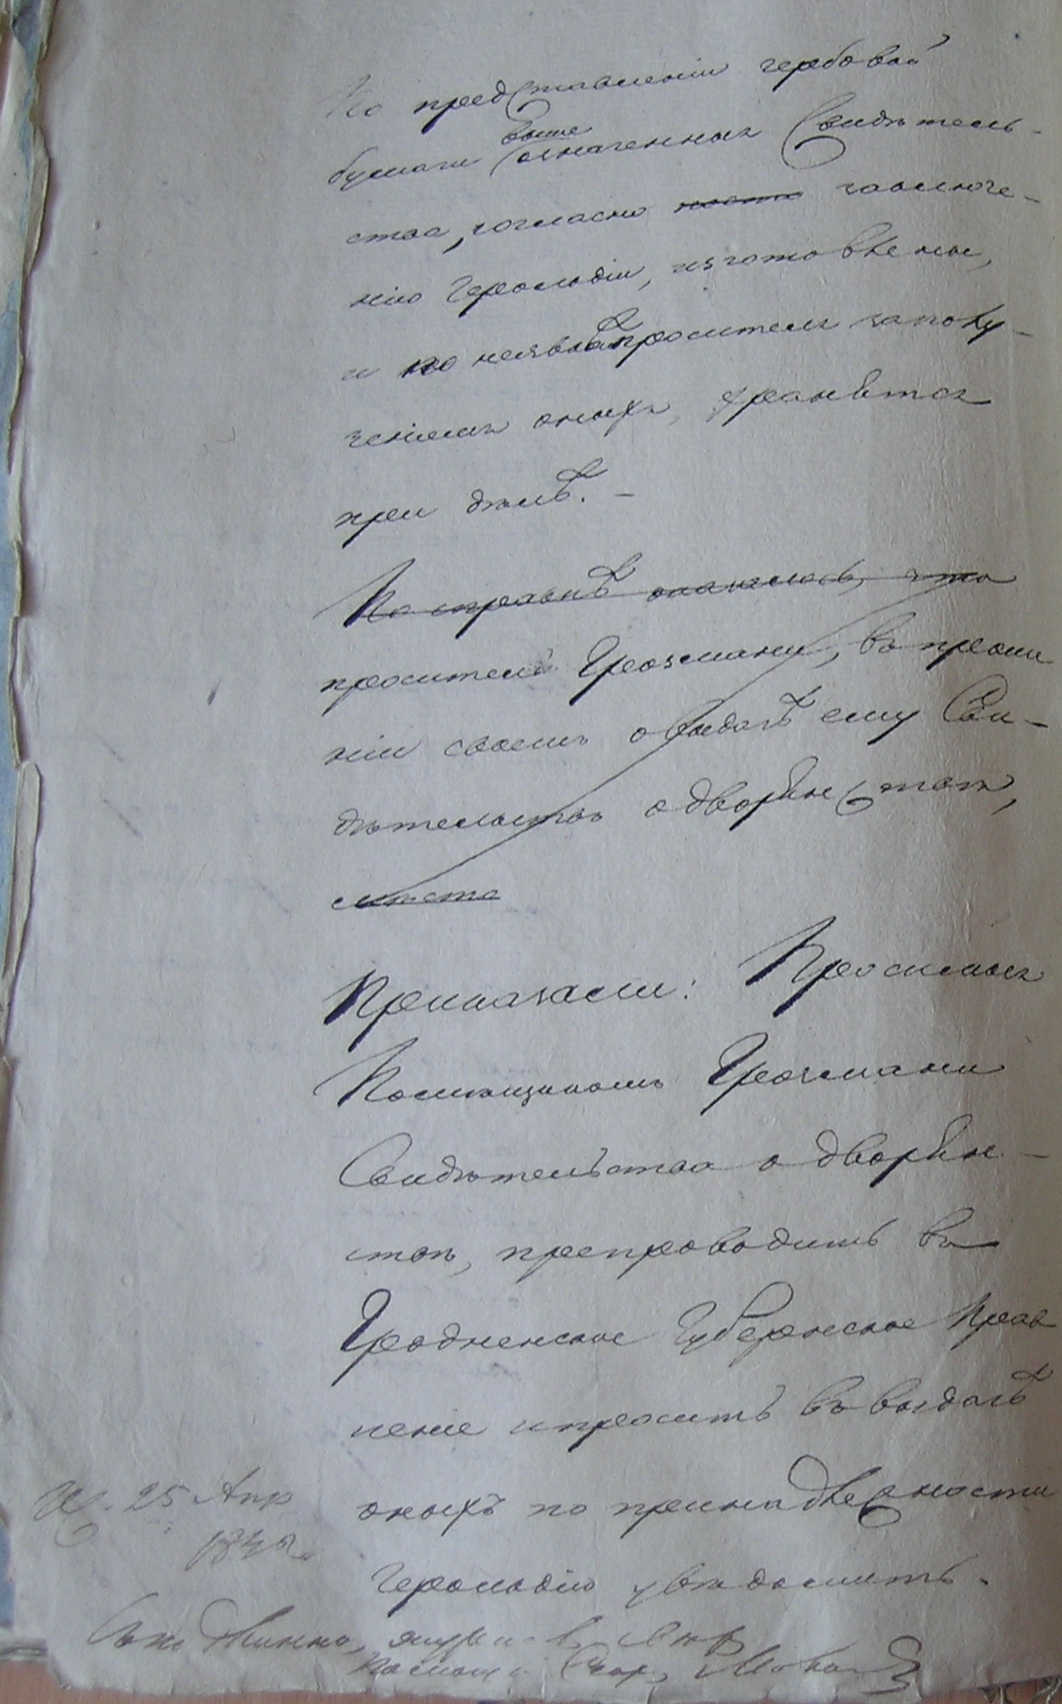 По представленіи гербовой
бумаги выше означенныя Свидѣтель-
ства, согласно заключе-
нію Герольдіи, изготовлены,
и по неявкѣ просителя за полу-
ченіемъ оныхъ, хранятся
при дѣлѣ. –
По справкѣ оказалось, что
проситель Грозмани, въ проше
ніи своемъ о выдачѣ ему Сви-
дѣтельствъ о дворянствѣ,
мѣста
Приказали: Просимыя
Помѣщикомъ Грозмани
Свидѣтельства о дворян-
ствѣ, препроводить въ
Гродненское Губернское Прав
леніе и просить въ выдачѣ
оныхъ по принадлежности
Герольдію увѣдомить.
25 Апр